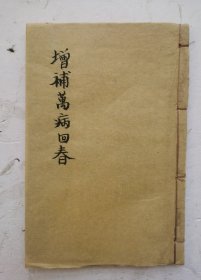 增補萬病回春